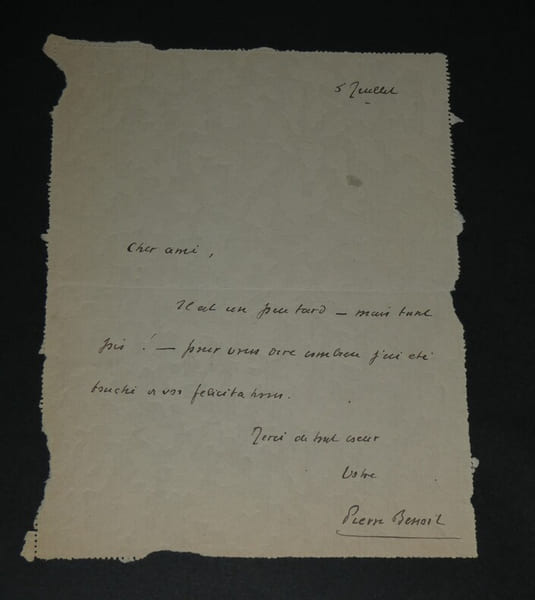 5 Juillet
Cher ami,
Il est un peu tard — mais tant
pis ! — pour vous dire combien j'ai été
touché de vos félicitations.
Merci de tout coeur
Votre
Pierre Benoit